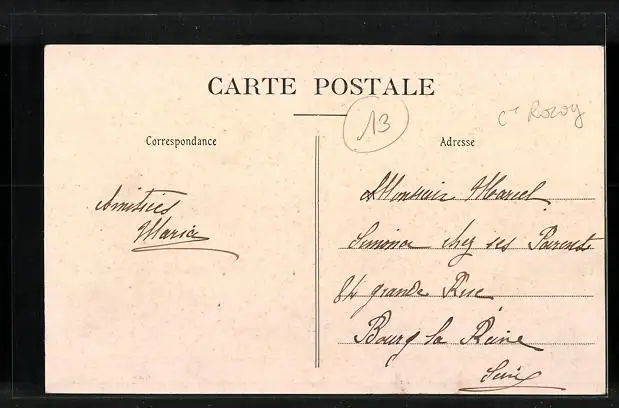 CARTE POSTALE
13
Cᵗ Rozoy
Correspondance
Adresse
Amitiés
Maria
Monsieur Marcel
Simona chez ses Parents
84 grande Rue
Bourg la Reine
Seine